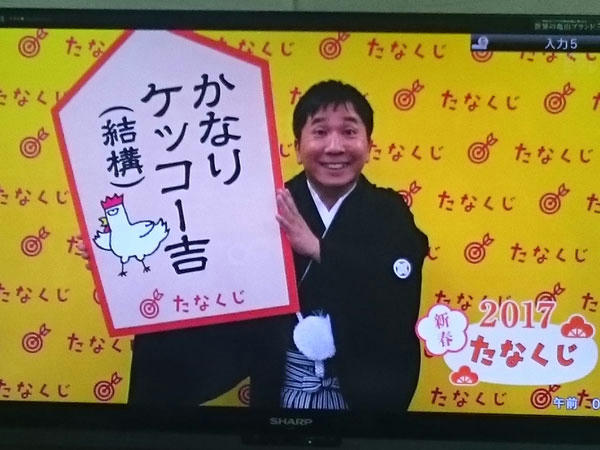 世界の亀山ブランド
入力5
かなり
ケッコー吉
(結構)
たなくじ
新春
2017
たなくじ
午前
SHARP
たなくじ
たなくじ
たなくじ
たなくじ
たなくじ
たなくじ
たなくじ
たなくじ